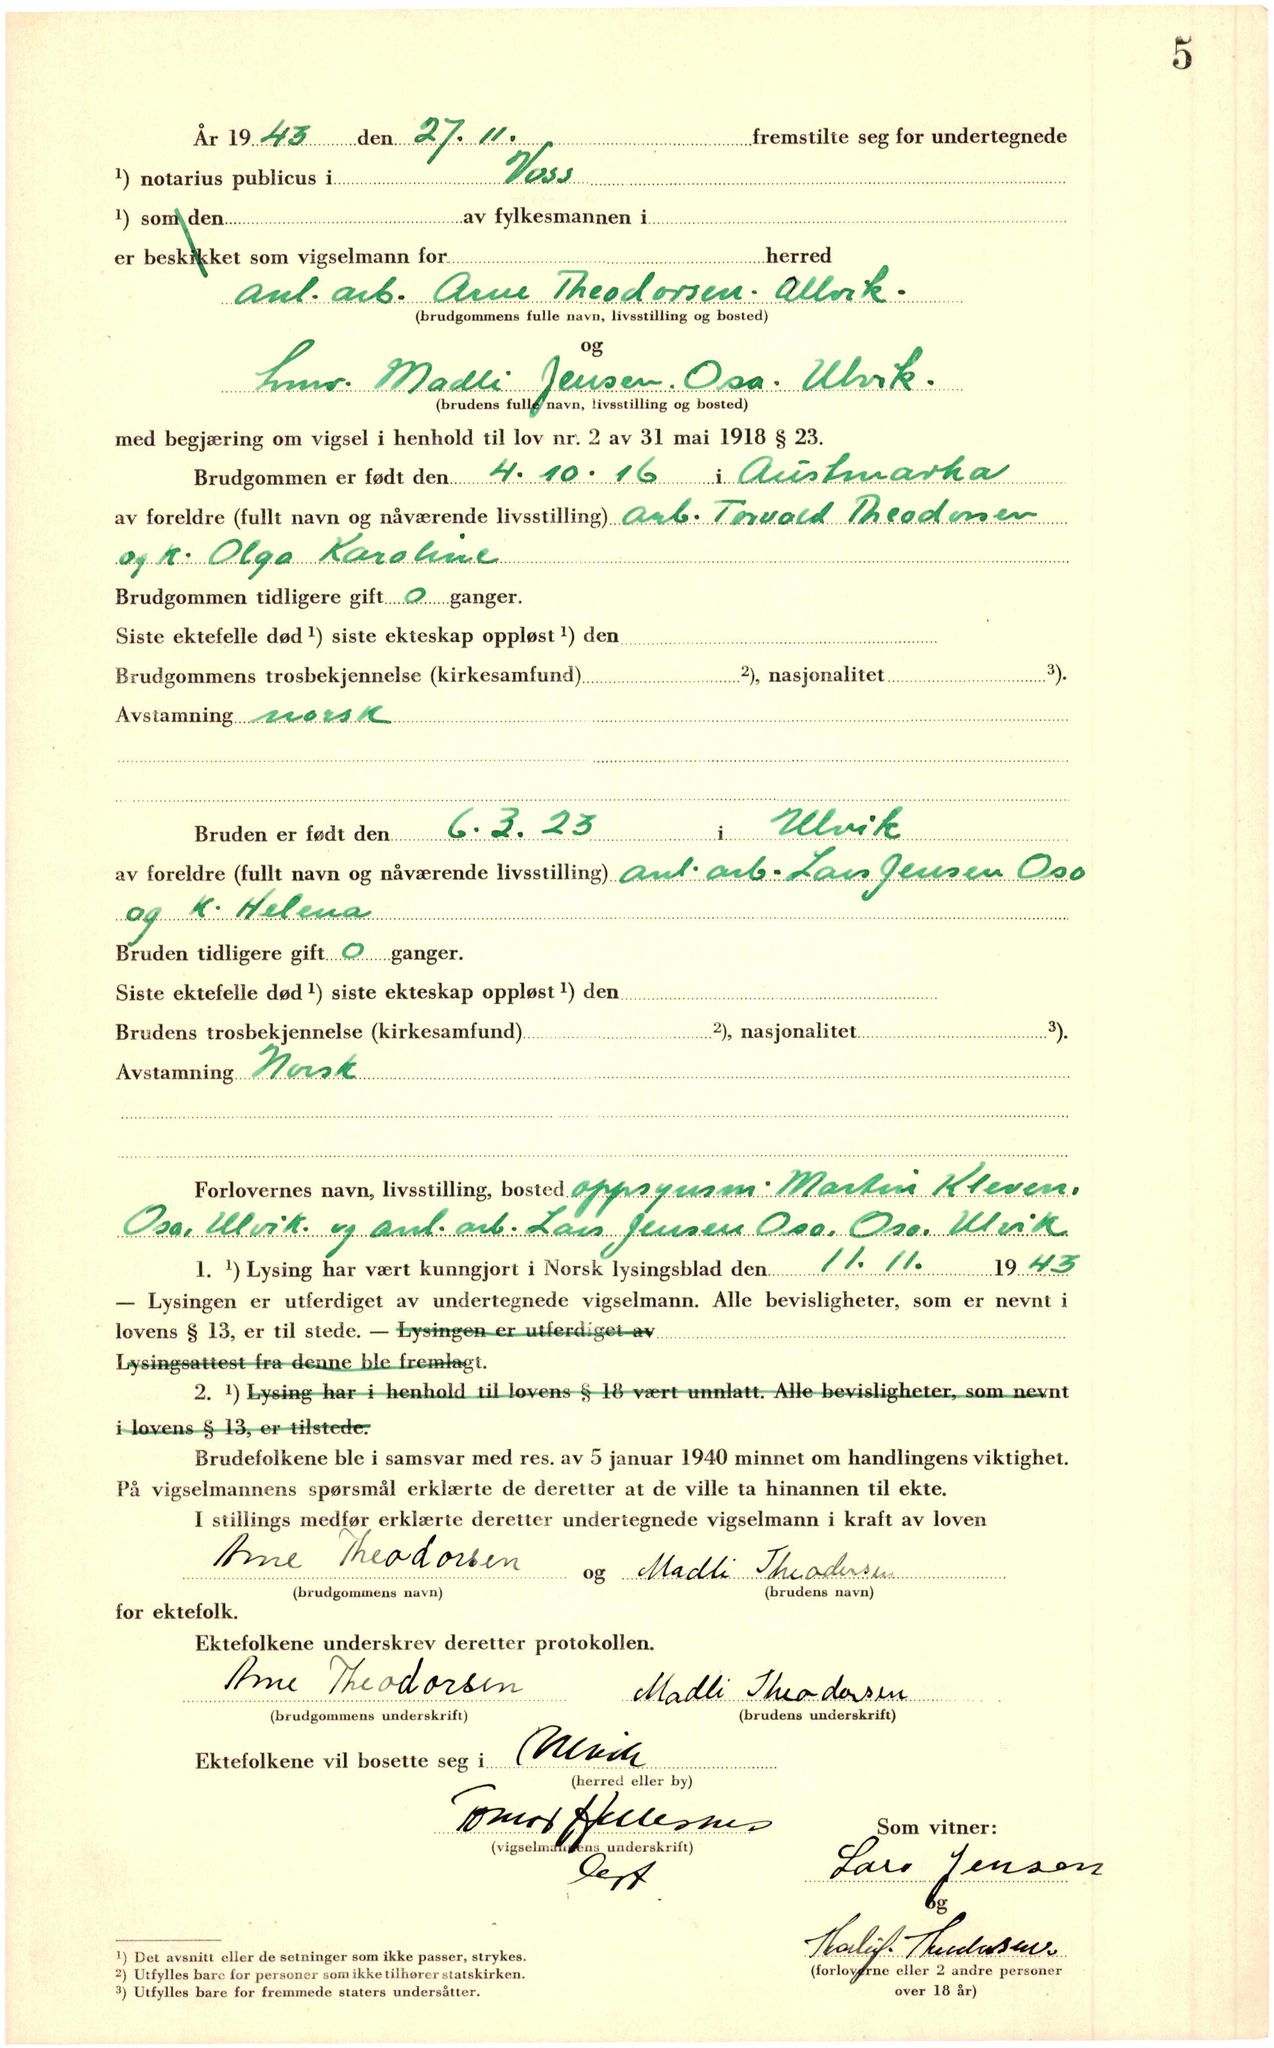 5
År 19 43 den 27. 11. fremstilte seg for undertegnede
¹) notarius publicus i Voss
¹) som den av fylkesmannen i
er beskikket som vigselmann for herred
anl. arb. Arne Theodorsen. Ulvik.
(brudgommens fulle navn, livsstilling og bosted)
og
Madli Jensen. Osa. Ulvik.
(brudens fulle navn, livsstilling og bosted)
med begjæring om vigsel i henhold til lov nr. 2 av 31 mai 1918 § 23.
Brudgommen er født den 4. 10. 16 i Austmarka
av foreldre (fullt navn og nåværende livsstilling) arb. Torvald Theodorsen
og k. Olga Karoline
Brudgommen tidligere gift 0 ganger.
Siste ektefelle død ¹) siste ekteskap oppløst ¹) den
Brudgommens trosbekjennelse (kirkesamfund) ²), nasjonalitet ³).
Avstamning norsk
Bruden er født den 6. 3. 23 i Ulvik
av foreldre (fullt navn og nåværende livsstilling) anl. arb. Lars Jensen Osa
og k. Helena
Bruden tidligere gift 0 ganger.
Siste ektefelle død ¹) siste ekteskap oppløst ¹) den
Brudens trosbekjennelse (kirkesamfund) ²), nasjonalitet ³).
Avstamning Norsk
Forlovernes navn, livsstilling, bosted oppsynsm. Martin Kleven.
Osa, Ulvik. og anl. arb. Lars Jensen Osa. Osa. Ulvik
1. ¹) Lysing har vært kunngjort i Norsk lysingsblad den 11. 11. 19 43
— Lysingen er utferdiget av undertegnede vigselmann. Alle bevisligheter, som er nevnt i
lovens § 13, er til stede. — Lysingen er utferdiget av
Lysingsattest fra denne ble fremlagt.
2. ¹) Lysing har i henhold til lovens § 18 vært unnlatt. Alle bevisligheter, som nevnt
i lovens § 13, er tilstede.
Brudefolkene ble i samsvar med res. av 5 januar 1940 minnet om handlingens viktighet.
På vigselmannens spørsmål erklærte de deretter at de ville ta hinannen til ekte.
I stillings medfør erklærte deretter undertegnede vigselmann i kraft av loven
Arne Theodorsen og Madli Theodorsen
(brudgommens navn) (brudens navn)
for ektefolk.
Ektefolkene underskrev deretter protokollen.
Arne Theodorsen Madli Theodorsen
(brudgommens underskrift) (brudens underskrift)
Ektefolkene vil bosette seg i Ulvik
(herred eller by)
Som vitner:
(vigselmannens underskrift)
Lars Jensen
og
(forloverne eller 2 andre personer
over 18 år)
¹) Det avsnitt eller de setninger som ikke passer, strykes.
²) Utfylles bare for personer som ikke tilhører statskirken.
³) Utfylles bare for fremmede staters undersåtter.